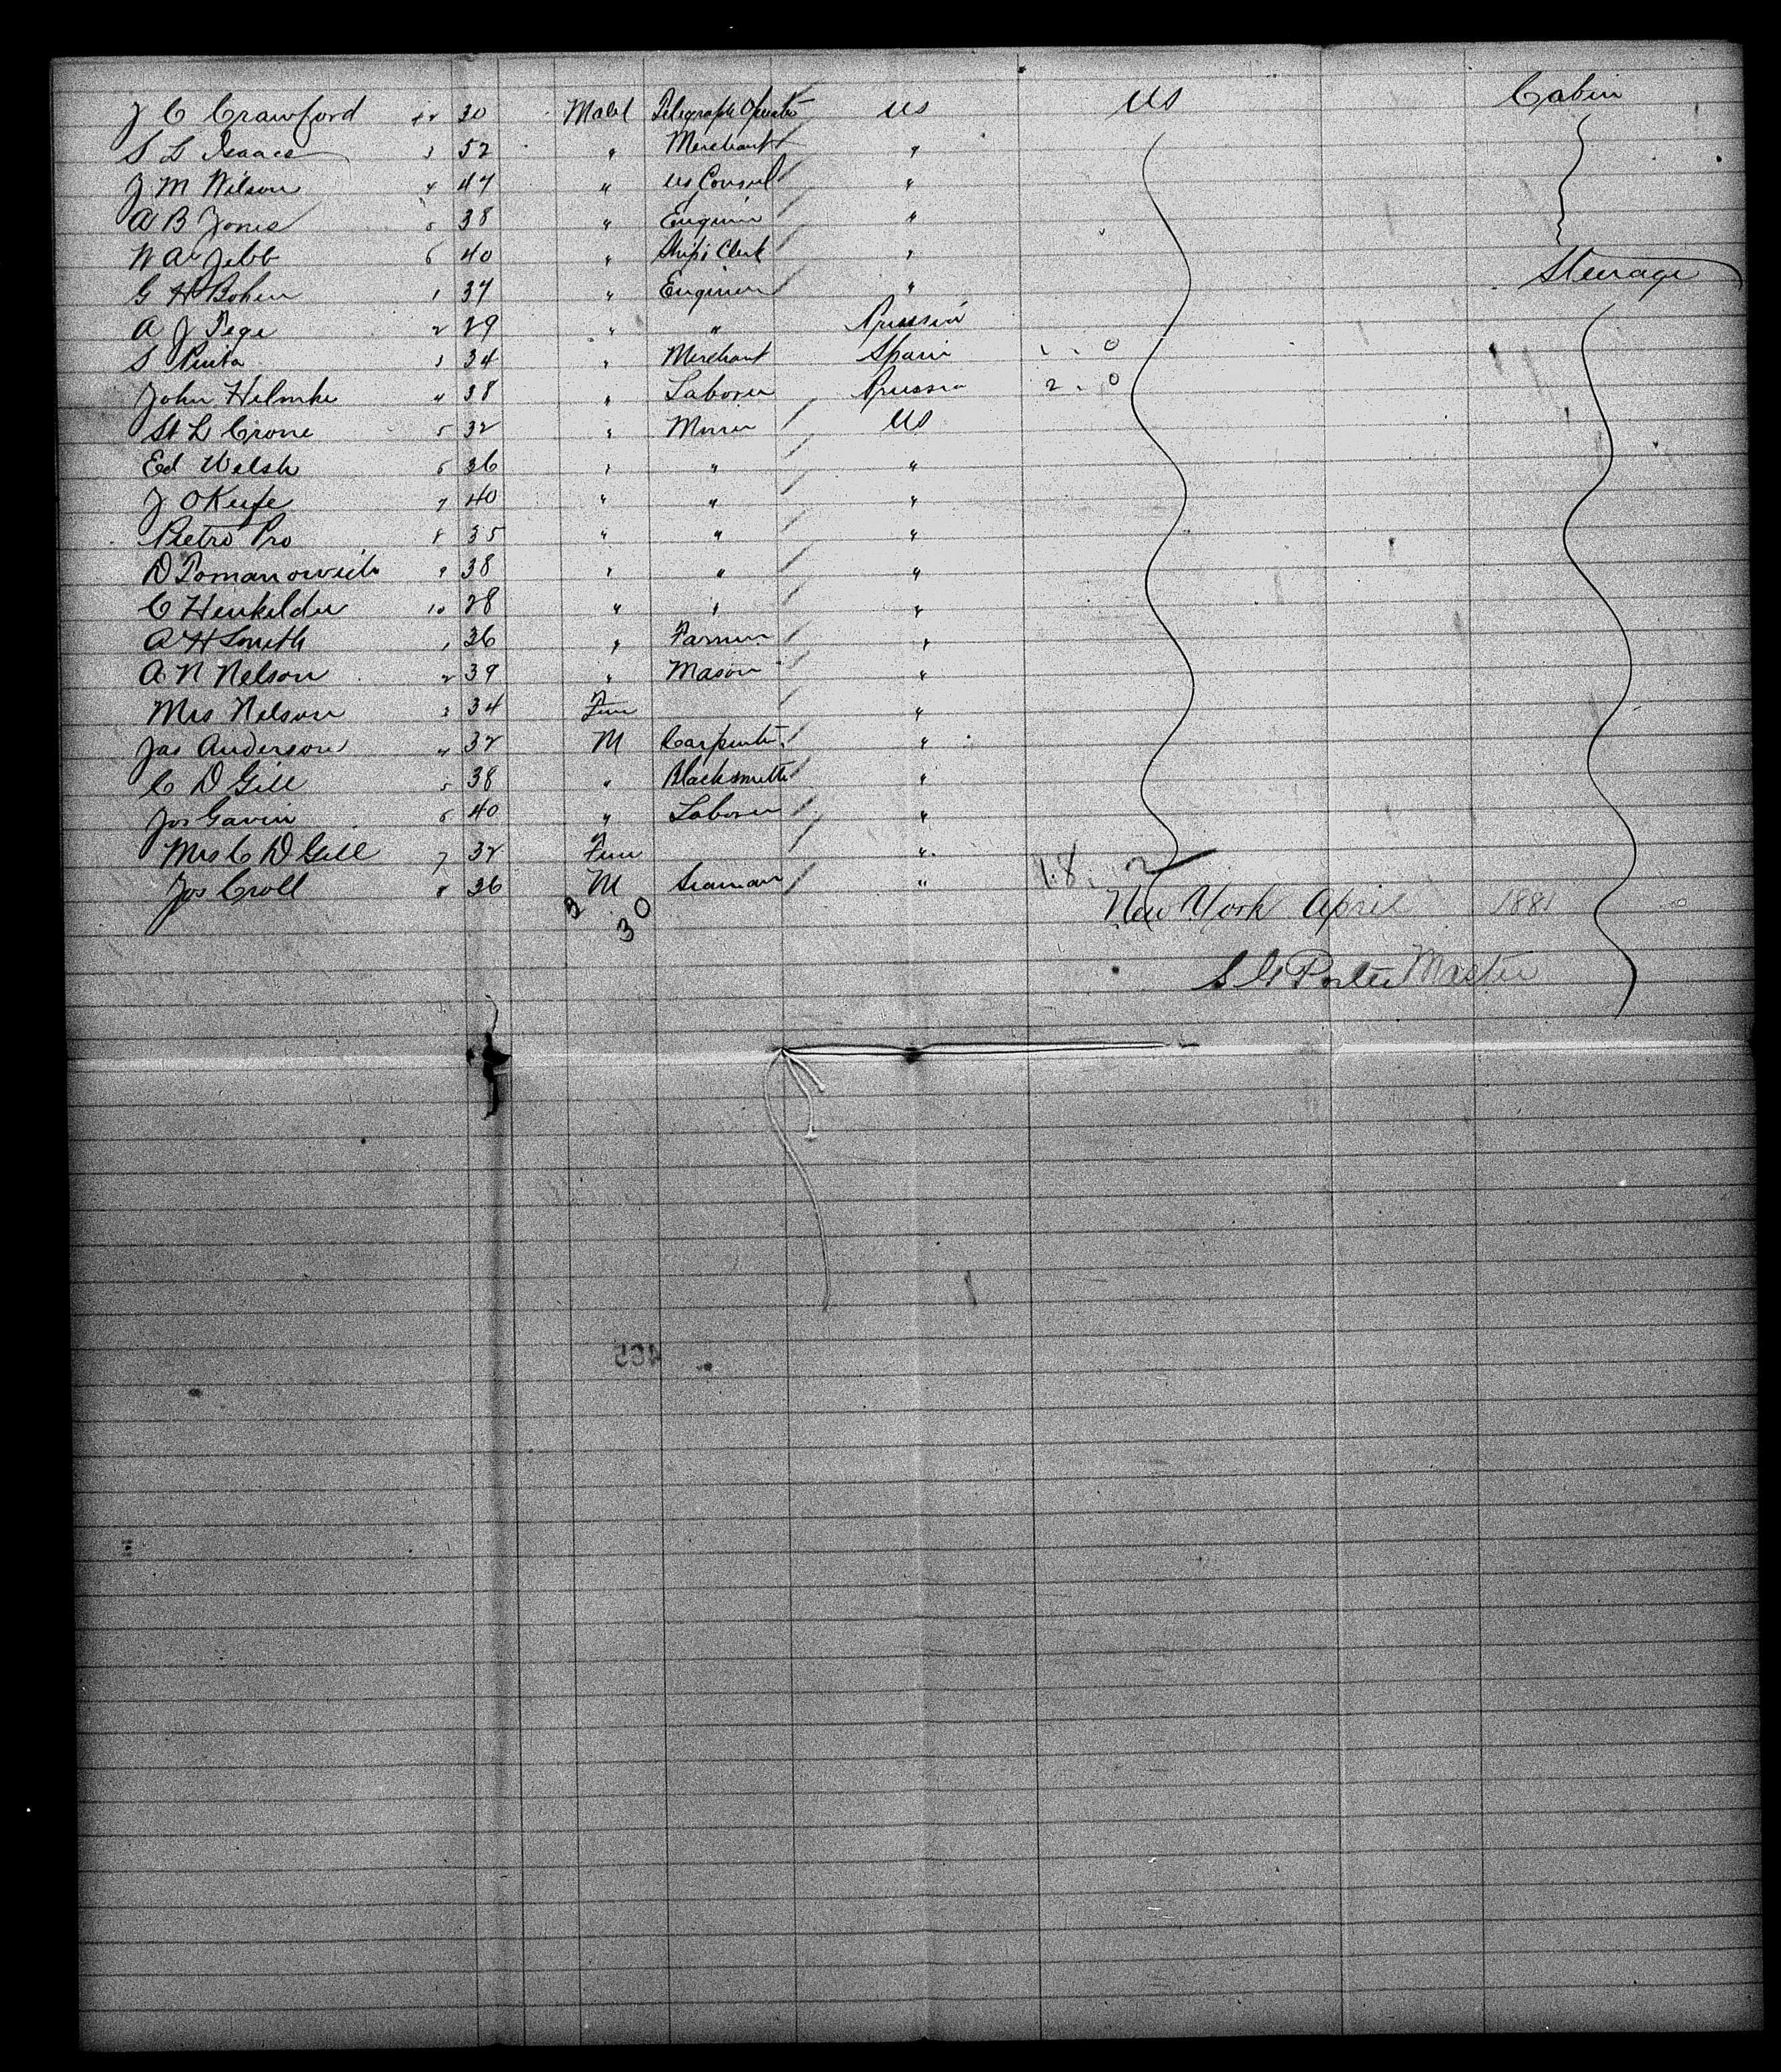 J C Crawford 30 Male Telegraph Operator US US Cabin
S L Isaacs 3 52 " Merchant "
J M Wilson 4 47 " US Consul "
A B Jones 5 38 " Engineer "
W A Jebb 6 40 " Ships Clerk "
Steerage
G H Bohen 1 37 " Engineer "
A J Tege 2 29 " " Prussia
S Pinta 3 34 " Merchant Spain 1 . 0
John Helmke 4 38 " Laborer Prussia 2 . 0
St L Crone 5 32 " Miner US
Ed Welsh 6 36 " " "
J OKeefe 7 40 " " "
Pietro Pro 8 35 " " "
D Tomanovich 9 38 " " "
C Henkelder 10 28 " " "
A H Smith 1 36 " Farmer "
A N Nelson 2 39 " Mason "
Mrs Nelson 3 34 Fem "
Jas Anderson 4 32 M Carpenter "
C D Gill 5 38 " Blacksmith "
Jos Gavin 6 40 " Laborer "
Mrs C D Gill 7 32 Fem "
Jos Croll 8 36 M Seaman " 18 . 2
3 . 0
3
New York April 1881
S G Porter Master
405